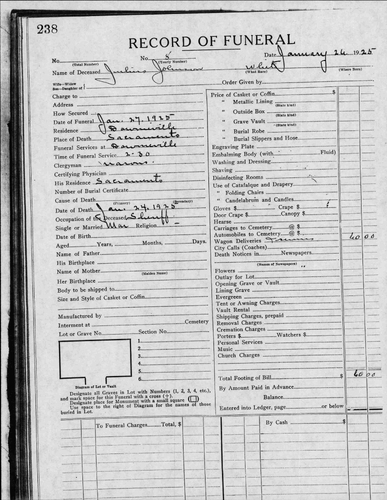 238
RECORD OF FUNERAL
No. No. Date January 26 1925
(Total Number) (Yearly Number)
Name of Deceased Julius Johnson White
(What Race) (Where Born)
Wife—Widow
Son—Daughter of Order Given by
Charge to
Address
How Secured
Date of Funeral Jan. 27, 1925
Residence Downieville
Place of Death Sacramento
Funeral Services at Downieville
Time of Funeral Service 2:30
Clergyman
Certifying Physician
His Residence Sacramento
Number of Burial Certificate
Cause of Death
Date of Death Jan. 24, 1925
Occupation of Deceased Sheriff
Single or Married Mar Religion
Date of Birth
Aged Years, Months, Days.
Name of Father
His Birthplace
Name of Mother
(Maiden Name)
Her Birthplace
Body to be shipped to
Size and Style of Casket or Coffin
Manufactured by
Interment at Cemetery
Lot or Grave No. Section No.
1
2
3
4
5
Diagram of Lot or Vault
Designate all Graves in Lot with Numbers (1, 2, 3, 4, etc.), and mark space for this Funeral with a cross (+)
Designate place for Monument with a small square
Use space to the right of Diagram for the names of those buried in Lot.
Price of Casket or Coffin
" Metallic Lining
(State kind)
" Outside Box
(State kind)
" Grave Vault
(State kind)
" Burial Robe
(State kind)
" Burial Slippers and Hose
Engraving Plate
Embalming Body (with Fluid)
Washing and Dressing
Shaving
Disinfecting Rooms
Use of Catafalque and Drapery
" Folding Chairs
" Candelabrum and Candles
Gloves $ Crape $
Door Crape $ Canopy $
Hearse
Carriages to Cemetery @ $
Automobiles to Cemetery @ $
Wagon Deliveries 60 00
City Calls (Coaches)
Death Notices in Newspapers
(Names of Newspapers)
Flowers
Outlay for Lot
Opening Grave or Vault
Lining Grave
Evergreen
Tent or Awning Charges
Vault Rental
Shipping Charges, prepaid
Removal Charges
Cremation Charges
Porters $ Watchers $
Personal Services
Music
Church Charges
Total Footing of Bill $ 60 00
By Amount Paid in Advance
Balance
Entered into Ledger, page or below
To Funeral Charges Total, $ By Cash $